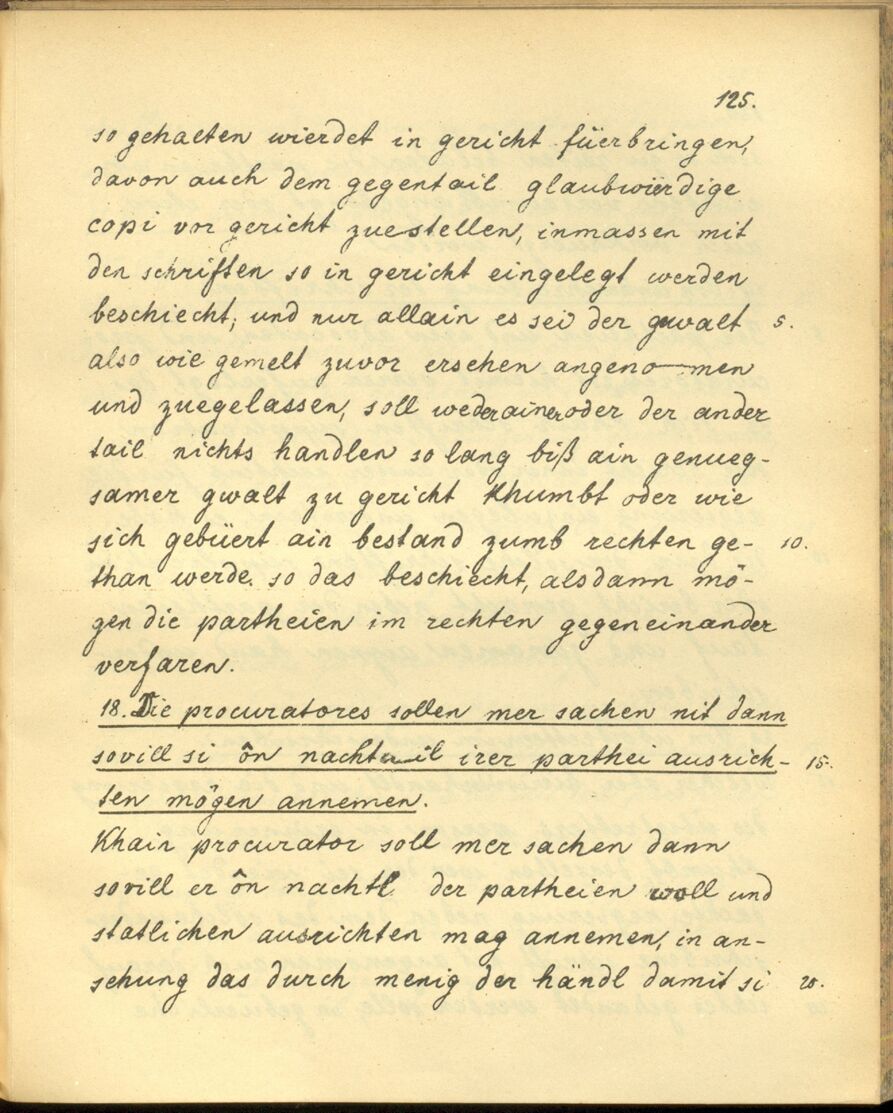 125.
so gehalten wierdet in gericht füerbringen,
davon auch dem gegentail glaubwierdige
copi vor gericht zuestellen, inmassen mit
den schriften so in gericht eingelegt werden
beschiecht, und nur allain es sei der gwalt 5.
also wie gemelt zuvor ersehen angenomen
und zuegelassen, soll weder ainer oder der ander
tail nichts handlen so lang biß ain genueg-
samer gwalt zu gericht khumbt oder wie
sich gebüert ain bestand zumb rechten ge- 10.
than werde. so das beschiecht, alsdann mö-
gen die partheien im rechten gegeneinander
verfaren.
18. Die procuratores sollen mer sachen nit dann
sovill si ôn nachtail irer parthei ausrich- 15.
ten mögen annemen.
Khain procurator soll mer sachen dann
sovill er ôn nachtl der partheien woll und
statlichen ausrichten mag annemen, in an-
sehung das durch menig der händl damit si 20.